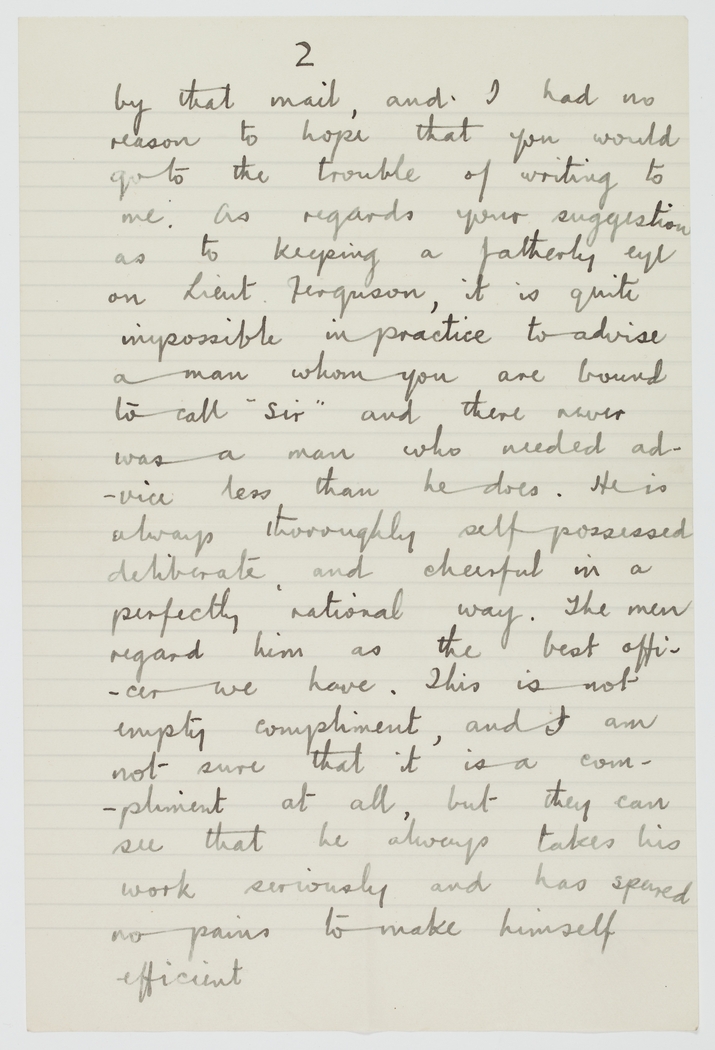 2
by that mail, and. I had no
reason to hope that you would
go to the trouble of writing to
me. As regards your suggestion
as to keeping a fatherly eye
on Lieut. Ferguson, it is quite
impossible in practice to advise
a man whom you are bound
to call "Sir" and there never
was a man who needed ad-
-vice less than he does. He is
always thoroughly self possessed
deliberate, and cheerful in a
perfectly rational way. The men
regard him as the best offi-
-cer we have. This is not
empty compliment, and I am
not sure that it is a com-
-pliment at all, but they can
see that he always takes his
work seriously and has spared
no pains to make himself
efficient